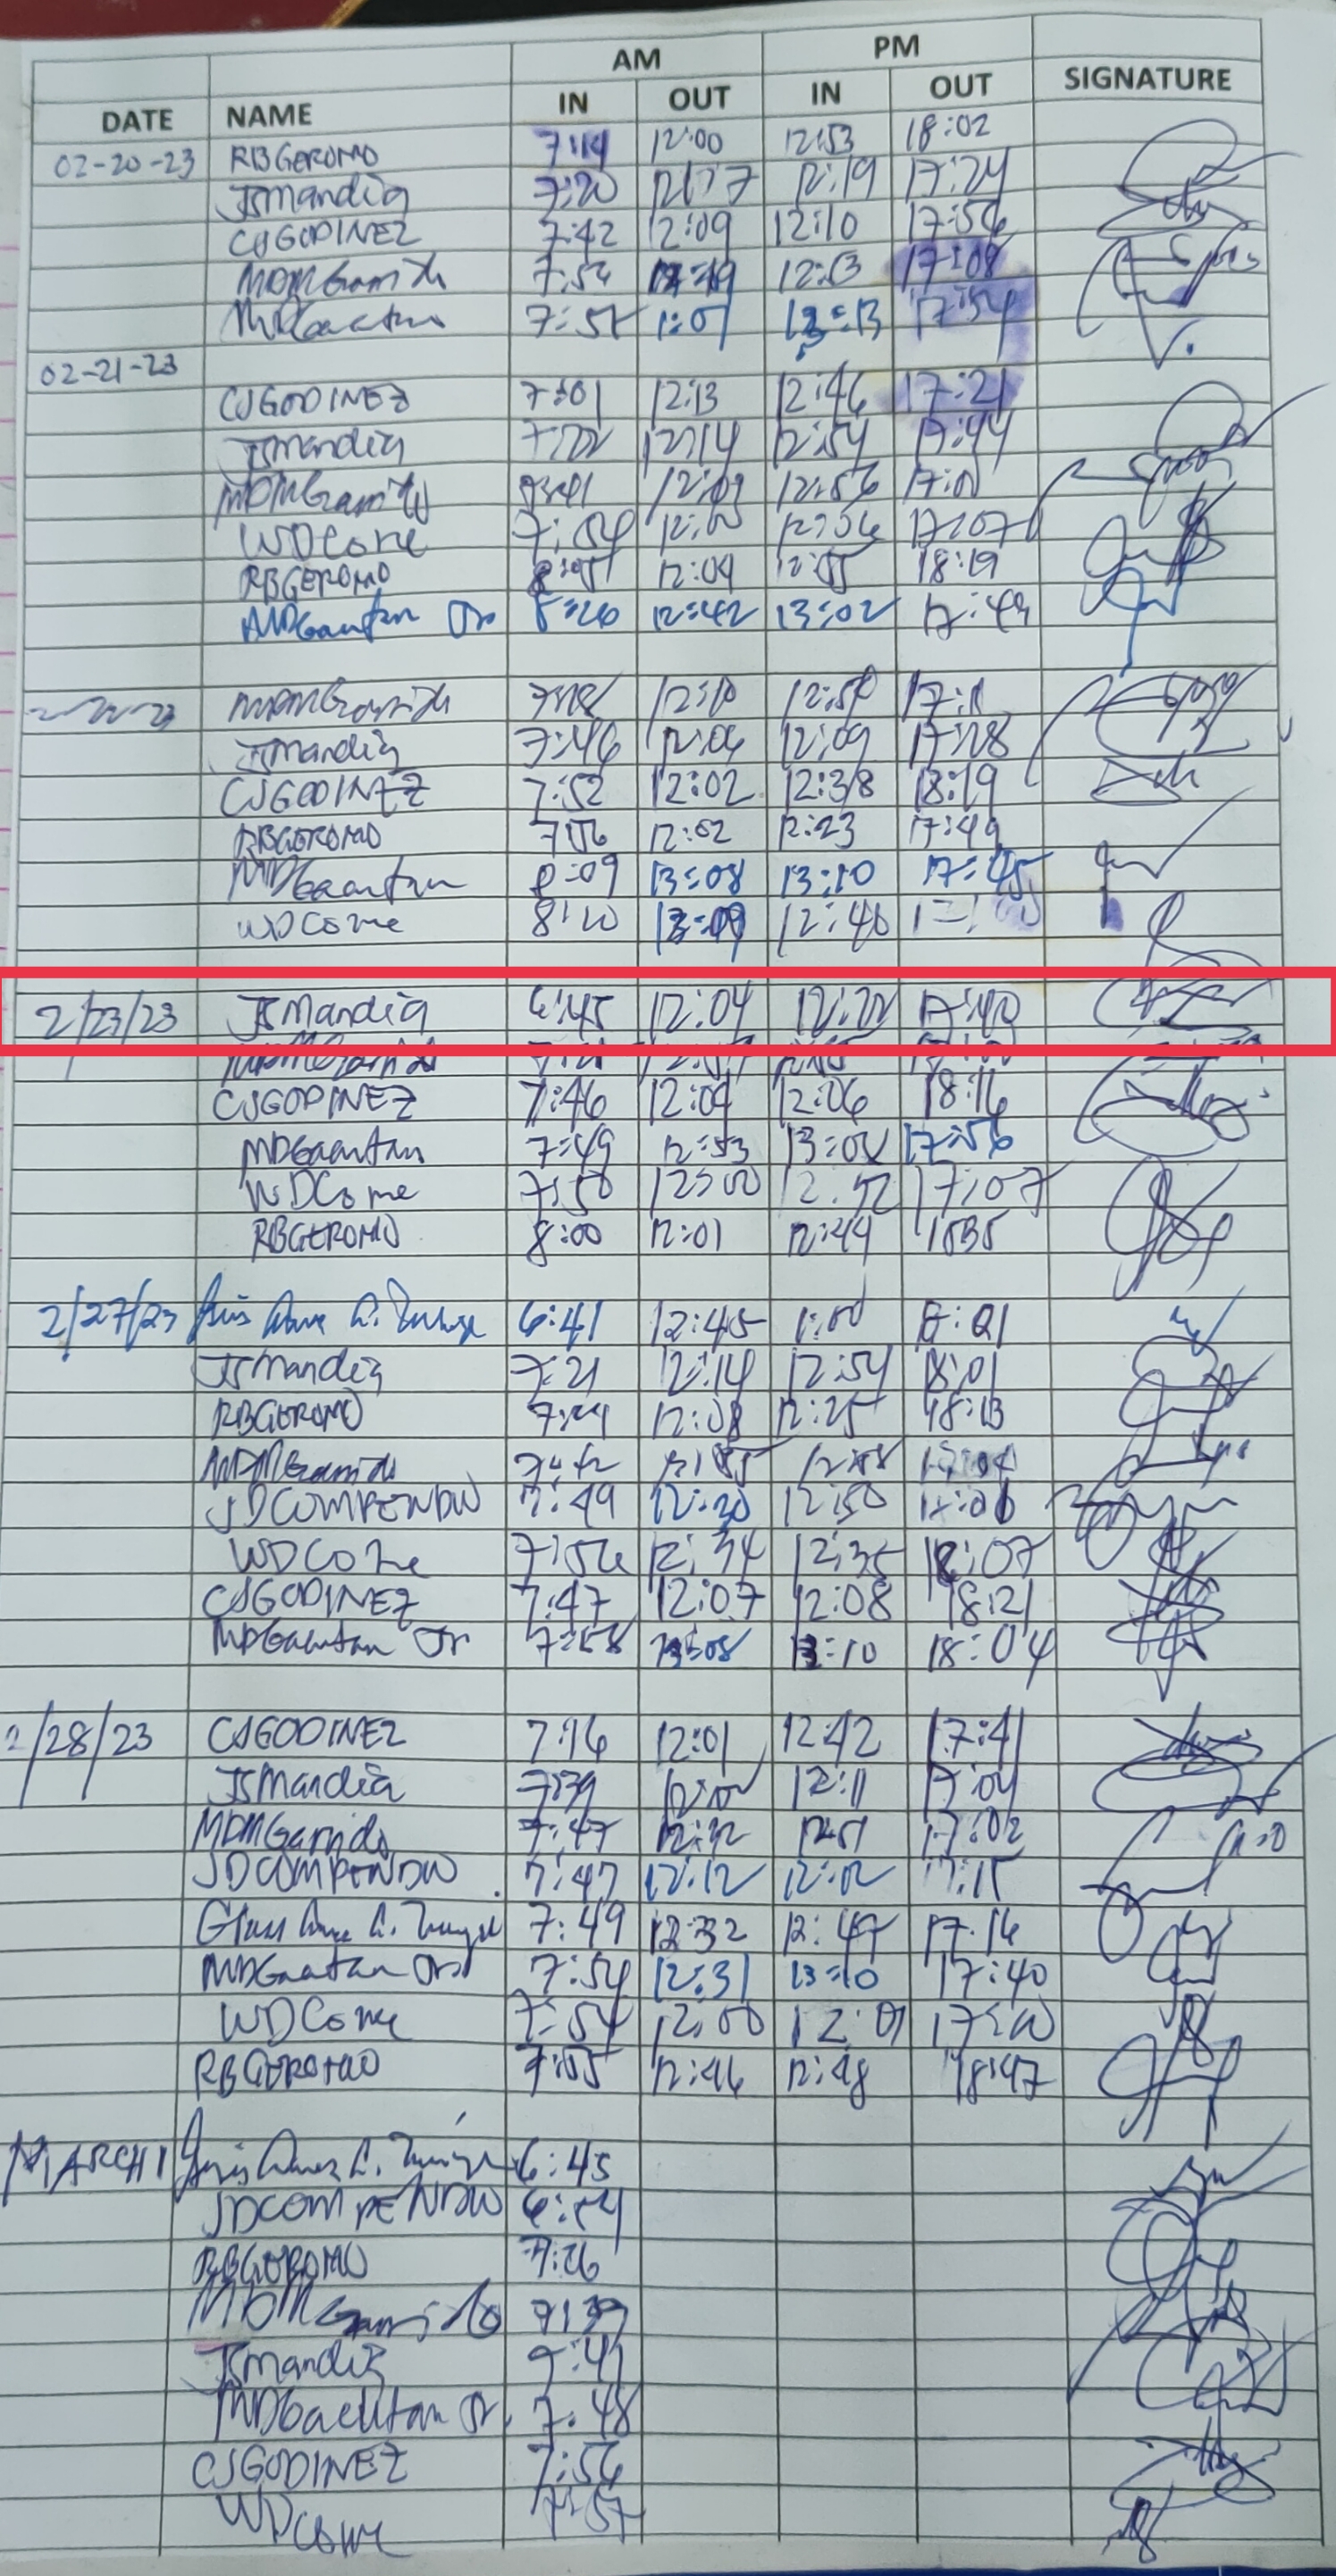 AM PM
DATE NAME IN OUT IN OUT SIGNATURE
02-20-23 RBGEROMO 7:14 12:00 12:53 18:02
JSMandia 7:20 12:17 12:19 17:24
CJGODINEZ 7:42 12:09 12:10 17:56
MDMGarrido 7:54 12:13 17:08
MDGaertan 7:51 1:01 13:13 17:54
02-21-23
CJGODINEZ 7:01 12:13 12:46 17:21
JSMandia 7:22 12:14 12:54 17:44
MDMGarrido 12:09 12:56 17:01
WDCome 7:54 12:00 12:06 17:07
RBGEROMO 12:04 12:55 18:19
MDGaertan Jr 8:26 12:42 13:02 17:49
MDMGarrido 12:10 12:58
JSMandia 7:46 12:06 12:09 17:28
CJGODINEZ 7:52 12:02 12:38 18:19
RBGEROMO 7:56 12:02 12:23 17:49
MDGaertan 8:09 13:08 13:10 17:45
WDCome 8:20 13:09 12:40
2/23/23 JSMandia 6:45 12:04 12:22 17:40
MDMGarrido
CJGODINEZ 7:46 12:04 12:06 18:16
MDGaertan 7:49 12:53 13:02 17:56
WDCome 7:50 12:00 12:52 17:07
RBGEROMO 8:00 12:01 12:44 1835
2/27/23 6:41 12:45 1:00
JSMandia 7:21 12:14 12:54 18:01
RBGEROMO 7:44 12:08 12:25 18:13
MDMGarrido 7:42 12:58
JDCOMPENDIO 7:49 12:30 12:50
WDCome 7:56 12:34 12:35 18:07
CJGODINEZ 7:47 12:07 12:08 18:21
MDGaertan Jr 7:58 13:08 13:10 18:04
2/28/23 CJGODINEZ 7:16 12:01 12:42 17:41
JSMandia 7:39 12:11 17:04
MDMGarrido 7:47 12:32 12:51 17:02
JDCOMPENDIO 7:47 12:12 12:02 17:15
7:49 12:32 12:47 17.16
MDGaertan Jr 7:54 12:31 13:10 17:40
WDCome 7:54 12:00 12:01 17:00
RBGEROMO 7:55 12:46 12:48 18:47
MARCH 1 6:45
JDCOMPENDIO 6:54
RBGEROMO 7:26
MDMGarrido 7:39
JSMandia 7:41
MDGaertan Jr. 7:48
CJGODINEZ 7:56
WDCome 7:57